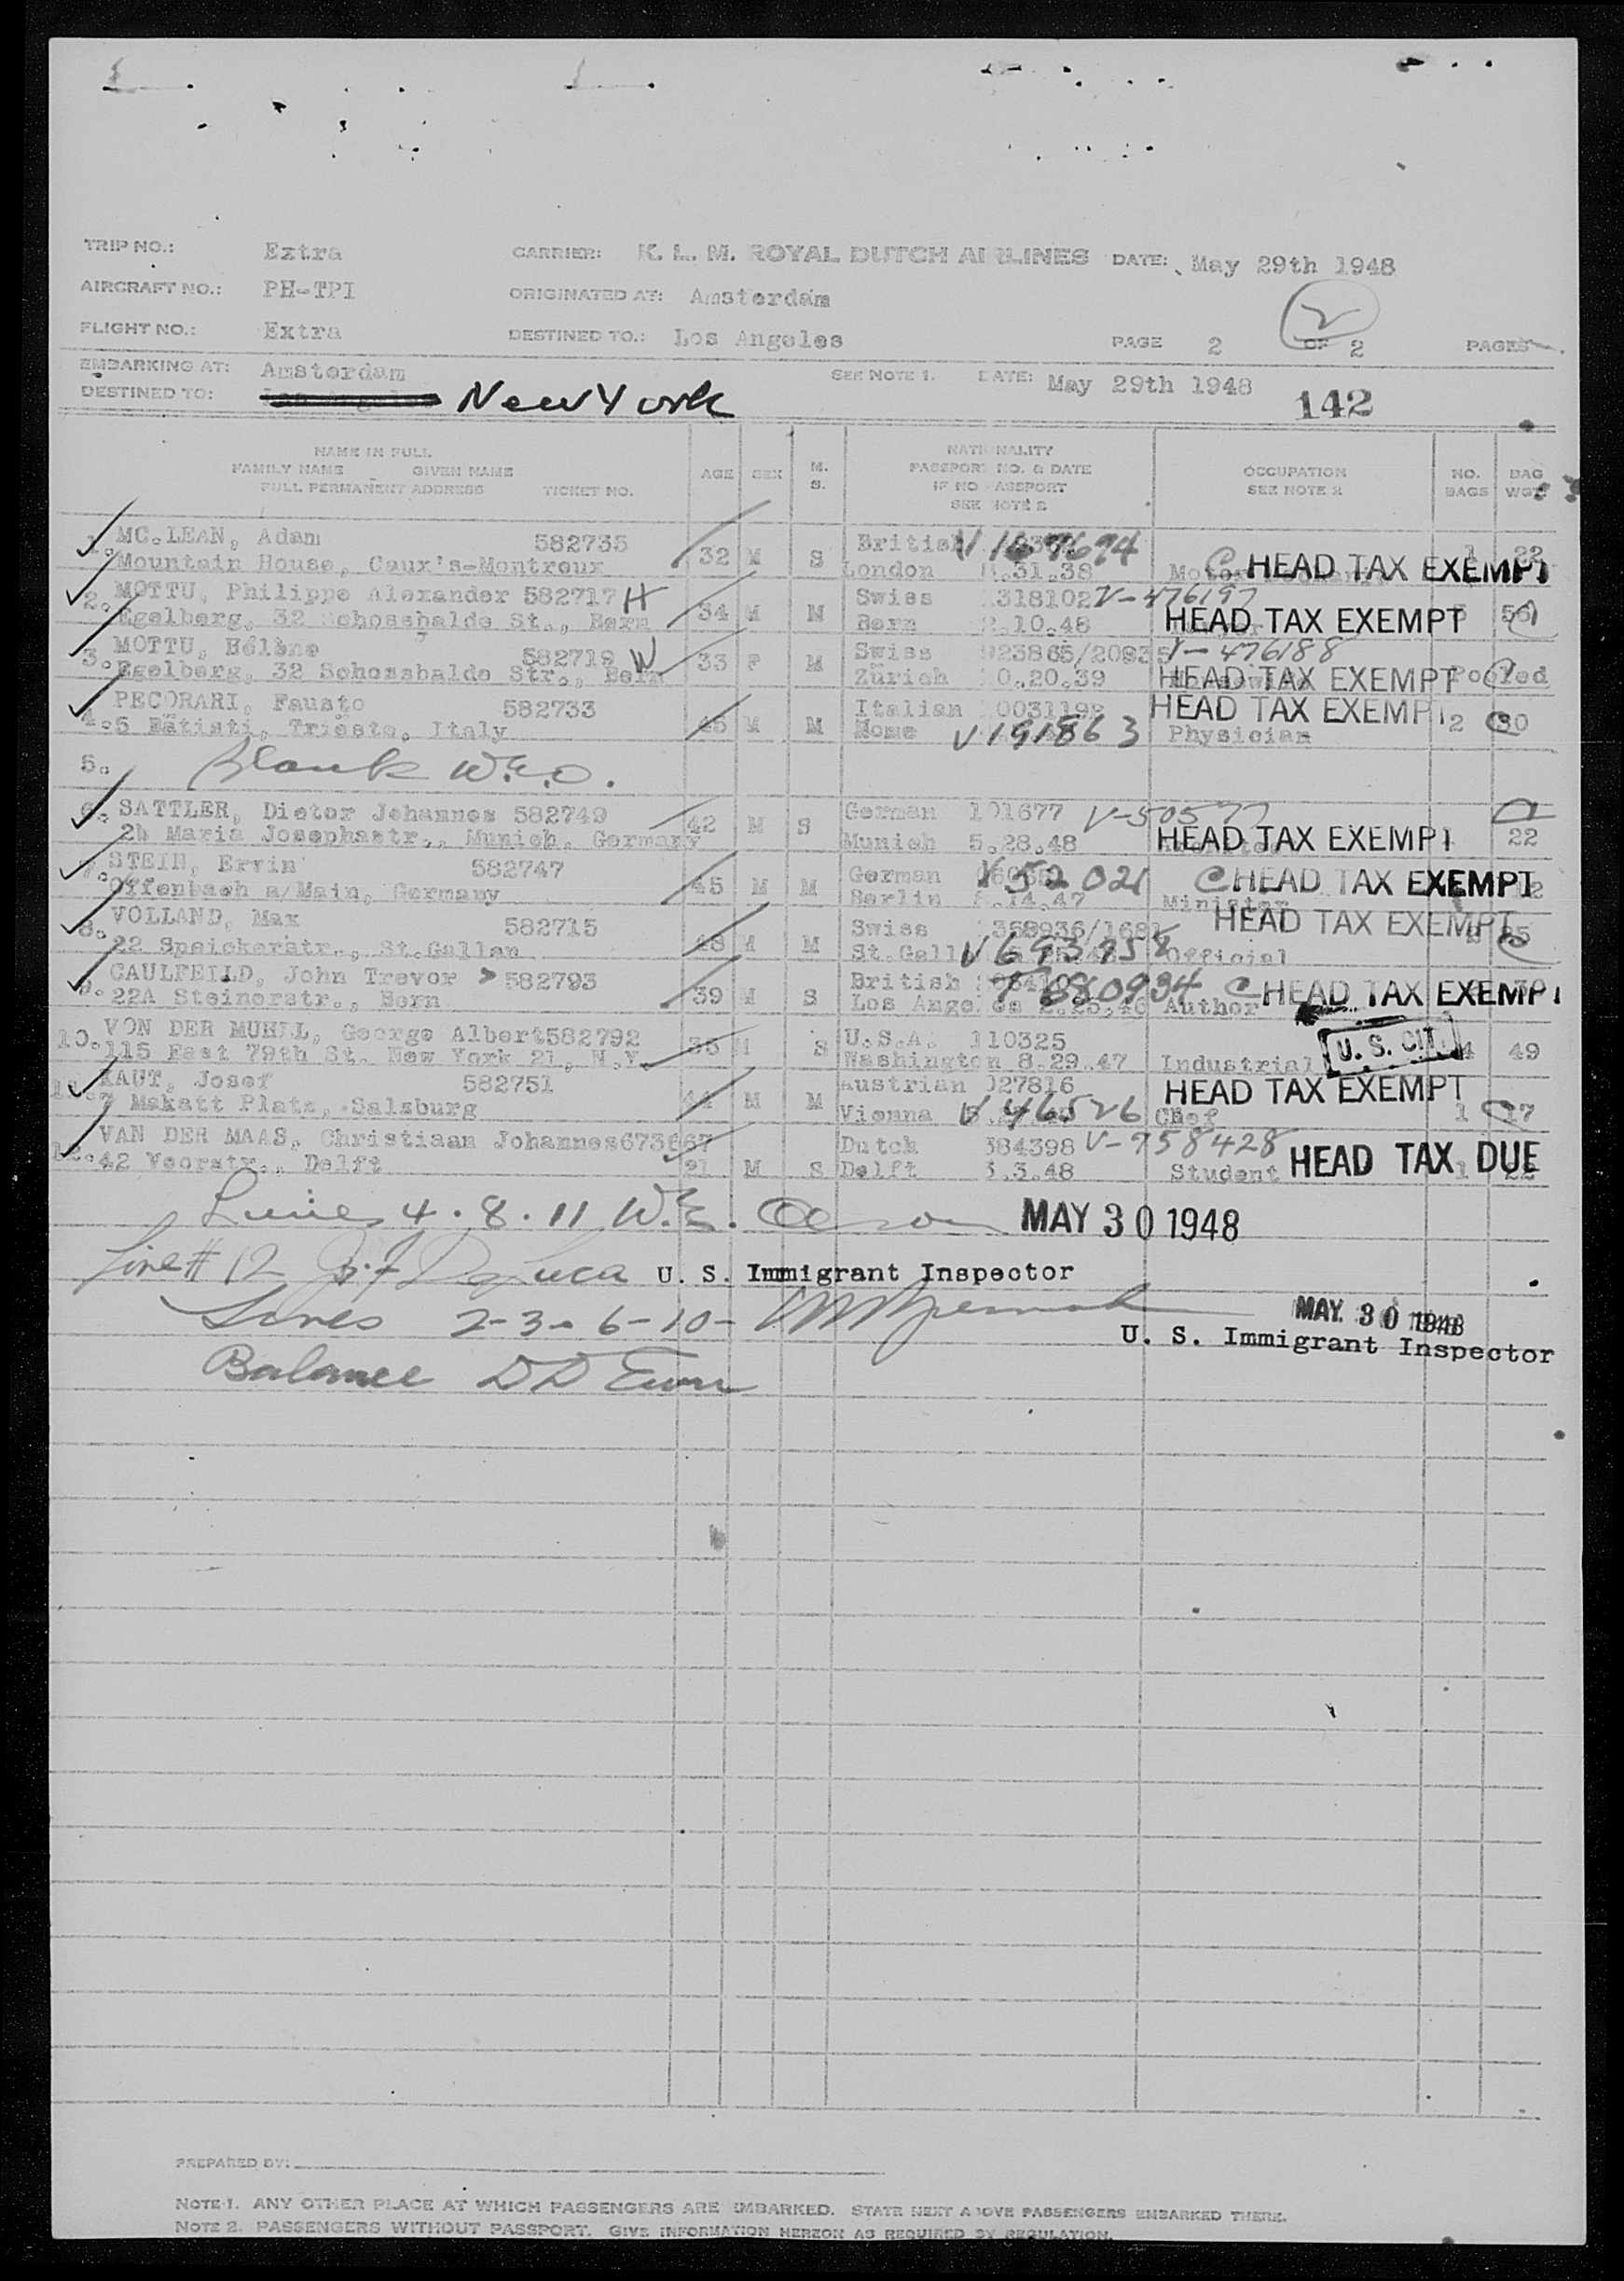 TRIP NO.: Extra CARRIER: K. L. M. ROYAL DUTCH AIRLINES DATE: May 29th 1948
AIRCRAFT NO.: PH-TPI ORIGINATED AT: Amsterdam
FLIGHT NO.: Extra DESTINED TO.: Los Angeles PAGE 2 OF 2 PAGES
2
EMBARKING AT: Amsterdam SEE NOTE 1. DATE: May 29th 1948
DESTINED TO: New York 142
NAME IN FULL
FAMILY NAME GIVEN NAME
FULL PERMANENT ADDRESS TICKET NO.
AGE SEX M. S.
NATIONALITY
PASSPORT NO. & DATE
IF NO PASSPORT
SEE NOTE 2
OCCUPATION
SEE NOTE 2
NO. BAGS
BAG WGT
1. MC.LEAN, Adam 582735 British V
Mountain House, Caux's-Montreux 32 M S London .31.38 HEAD TAX EXEMPT 1 22
2. MOTTU, Philippe Alexander 582717 H Swiss 318102 V-476197
Egelberg, 32 Schosshalde St., Bern 34 M M Bern .10.48 HEAD TAX EXEMPT 56
3. MOTTU, Hélène 582719 W Swiss 23865/20935 V-476188
Egelberg, 32 Schosshalde Str., Bern 33 F M Zürich 0.20.39 HEAD TAX EXEMPT Pooled
4. PECORARI, Fausto 582733 Italian 0031192 HEAD TAX EXEMPT
5 Bätisti, Trieste, Italy M M V 191863 Physician 2 30
5. Blank W.E.O.
6. SATTLER, Dieter Johannes 582749 German 101677 V-50577
2b Maria Josephastr., Munich, Germany 42 M S Munich 5.28.48 HEAD TAX EXEMPT 22
7. STEIN, Ervin 582747 German V 52021 HEAD TAX EXEMPT
Offenbach a/Main, Germany 45 M M Berlin .14.47 Minister
8. VOLLAND, Max 582715 Swiss HEAD TAX EXEMPT
22 Speickerstr., St.Gallen 48 M M St.Gall V 693958 Official
9. CAULFEILD, John Trevor 582793 British 680934 HEAD TAX EXEMPT
22A Steinerstr., Bern 39 M S Los Angeles 2.25.46 Author
10. VON DER MUHLL, George Albert 582792 U.S.A. 110325 U. S. CIT.
115 East 79th St. New York 21, N.Y. 35 M S Washington 8.29.47 Industrial 4 49
11. KAUT, Josef 582751 Austrian 027816 HEAD TAX EXEMPT
7 Makatt Platz, Salzburg 44 M M Vienna V 46526 Chef 1 17
12. VAN DER MAAS, Christiaan Johannes 673667 Dutch 384398 V-958428
42 Voorstr., Delft 21 M S Delft 3.3.48 Student HEAD TAX DUE 1 22
Lines 4. 8. 11 W. E. Olson MAY 30 1948
Line # 12 DeLuca U. S. Immigrant Inspector
Lines 2-3-6-10- MAY 30 1948
U. S. Immigrant Inspector
Balance D D
PREPARED BY:
NOTE 1. ANY OTHER PLACE AT WHICH PASSENGERS ARE EMBARKED. STATE NEXT ABOVE PASSENGERS EMBARKED THERE.
NOTE 2. PASSENGERS WITHOUT PASSPORT. GIVE INFORMATION HEREON AS REQUIRED BY REGULATION.